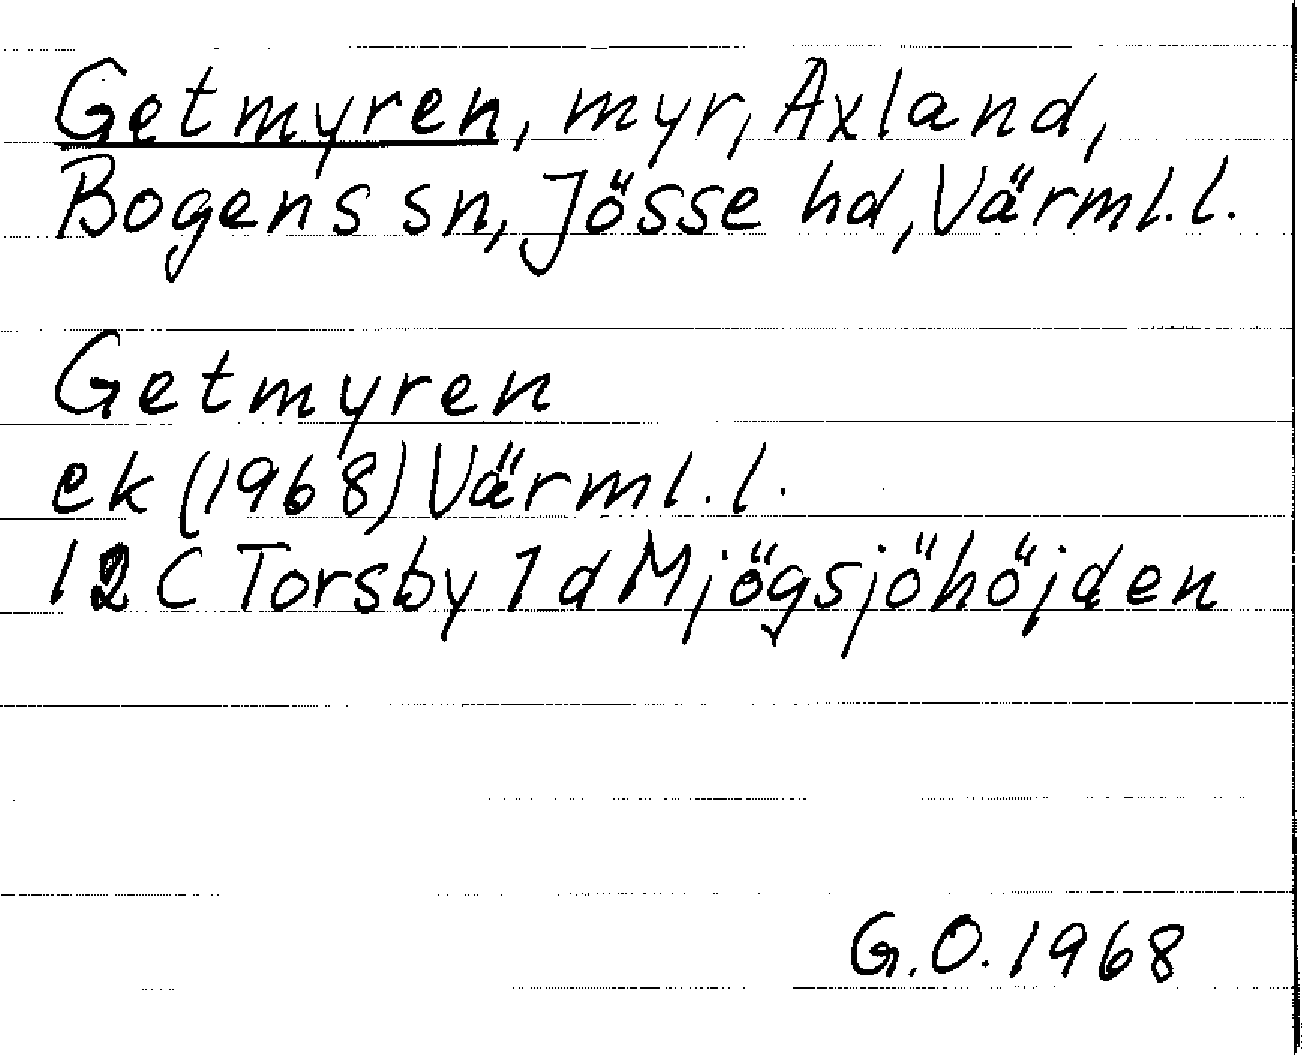 Getmyren, myr, Axland,
Bogens sn, Jösse hd, Värml.l.
Getmyren
ek (1968) Värml.l.
12 C Torsby 1 d Mjögsjöhöjden
G.O. 1968